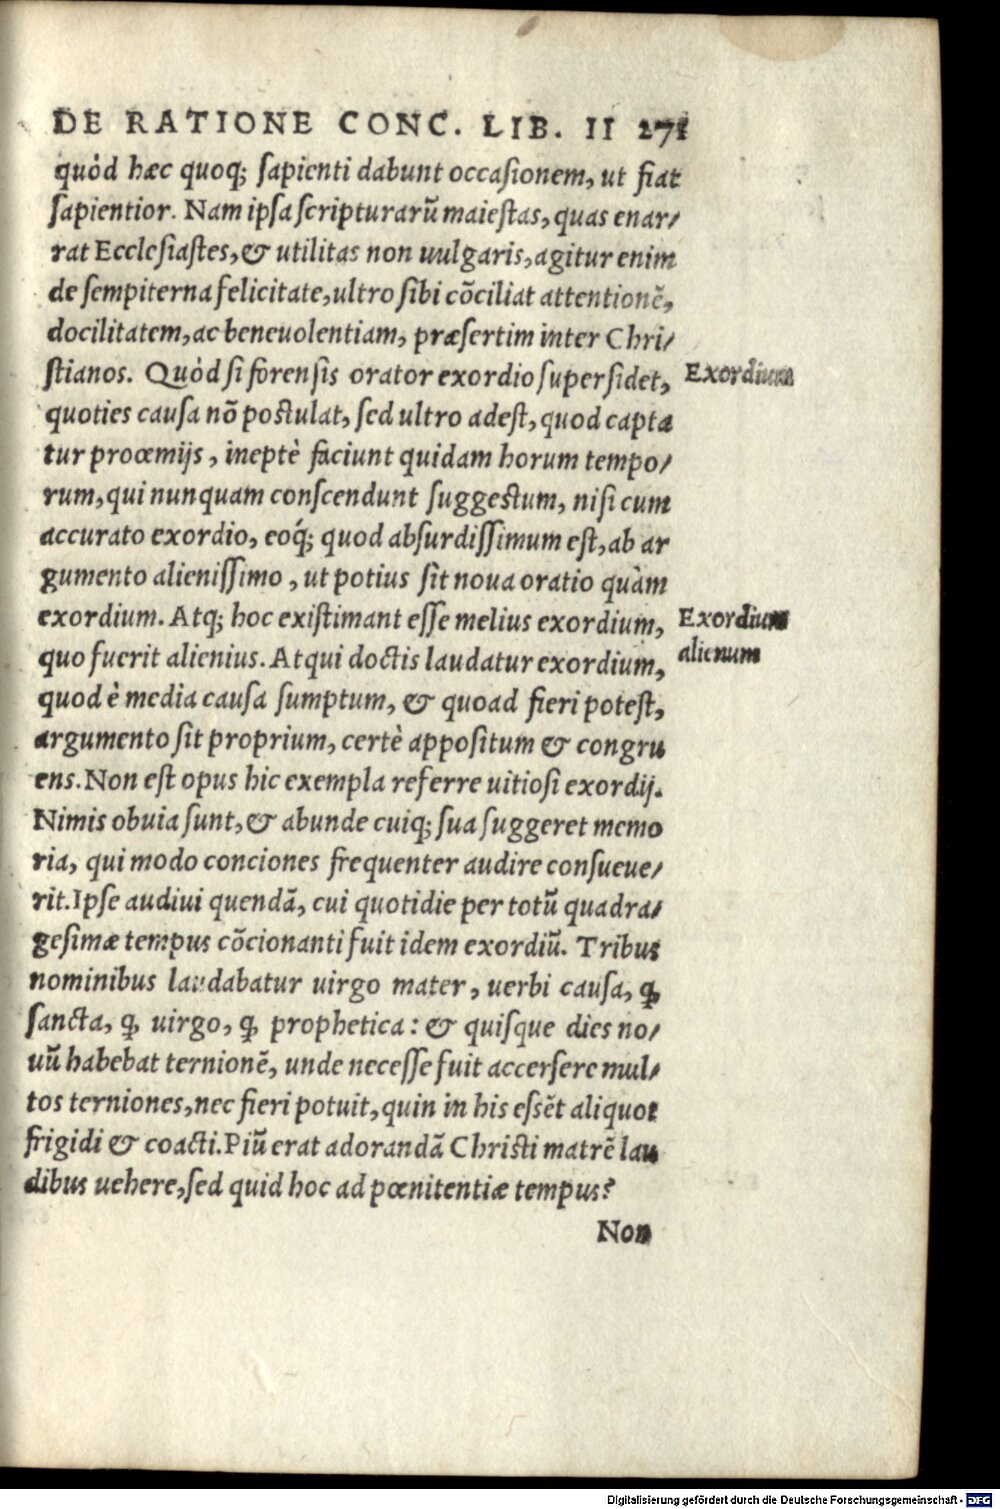 DE RATIONE CONC. LIB. II 271
quòd hæc quoq; ſapienti dabunt occaſionem, ut fiat
ſapientior. Nam ipſa ſcripturarũ maieſtas, quas enar/
rat Eccleſiaſtes, & utilitas non uulgaris, agitur enim
de ſempiterna felicitate, ultro ſibi cõciliat attentionẽ,
docilitatem, ac beneuolentiam, præſertim inter Chri/
ſtianos. Quòd ſi forenſis orator exordio ſuperſidet,
Exordium
quoties cauſa nõ poſtulat, ſed ultro adeſt, quod capta
tur proœmijs, ineptè faciunt quidam horum tempo/
rum, qui nunquam conſcendunt ſuggeſtum, niſi cum
accurato exordio, eoq́; quod abſurdiſſimum eſt, ab ar
gumento alieniſſimo, ut potius ſit noua oratio quàm
exordium. Atq; hoc exiſtimant eſſe melius exordium,
Exordium
quo fuerit alienius. Atqui doctis laudatur exordium,
alienum
quod è media cauſa ſumptum, & quoad fieri poteſt,
argumento ſit proprium, certè appoſitum & congru
ens. Non eſt opus hic exempla referre uitioſi exordij.
Nimis obuia ſunt, & abunde cuiq; ſua ſuggeret memo
ria, qui modo conciones frequenter audire conſueue/
rit. Ipſe audiui quendã, cui quotidie per totũ quadra/
geſimæ tempus cõcionanti fuit idem exordiũ. Tribus
nominibus laudabatur uirgo mater, uerbi cauſa, ꝙ
ſancta, ꝙ uirgo, ꝙ prophetica: & quiſque dies no/
uũ habebat ternionẽ, unde neceſſe fuit accerſere mul/
tos terniones, nec fieri potuit, quin in his eſsẽt aliquot
frigidi & coacti. Piũ erat adorandã Chriſti matrẽ lau
dibus uehere, ſed quid hoc ad pœnitentiæ tempus?
Non
Digitalisierung gefördert durch die Deutsche Forschungsgemeinschaft - DFG